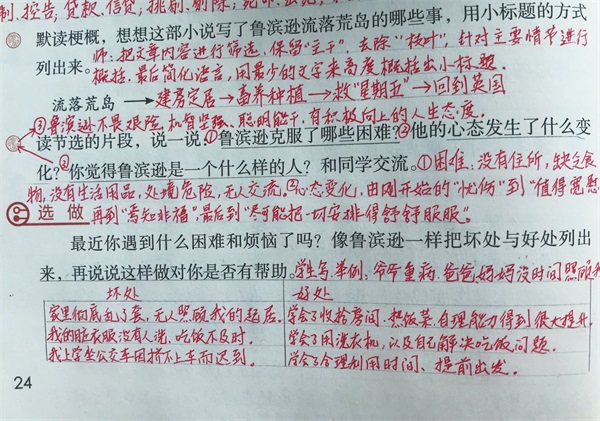 制、控告、贷款、信贷;排剔、剔除;宛
默读梗概,想想这部小说写了鲁滨逊流落荒岛的哪些事,用小标题的方式
师:把文章内容进行筛选,保留“主干”,去除“枝叶”,针对主要情节进行
列出来。
概括,最后简化语言,用最少的文字来高度概括出小标题。
流落荒岛→建房定居→畜养种植→救“星期五”→回到英国
③鲁滨逊不畏艰险,机智坚强、聪明能干,有积极向上的人生态度。
读节选的片段,说一说:①鲁滨逊克服了哪些困难?②他的心态发生了什么变
化?③你觉得鲁滨逊是一个什么样的人?和同学交流。①困难:没有住所,缺乏食
物,没有生活用品,处境危险,无人交流。②心态变化,由刚开始的“忧伤”到“值得宽慰
选做 再到“焉知非福”,最后到“尽可能把一切安排得舒舒服服”。
最近你遇到什么困难和烦恼了吗?像鲁滨逊一样把坏处与好处列出
来,再说说这样做对你是否有帮助。学生写,举例:爷爷重病,爸爸妈妈没时间照顾我
坏处 好处
家里彻底乱了套,无人照顾我的起居。 学会了收拾房间、热饭菜,自理能力得到很大提升。
我的脏衣服没有人洗、吃饭不及时。 学会了用洗衣机,以及自己解决吃饭问题。
我上学坐公交车因挤不上车而迟到。 学会了合理利用时间、提前出发。
24